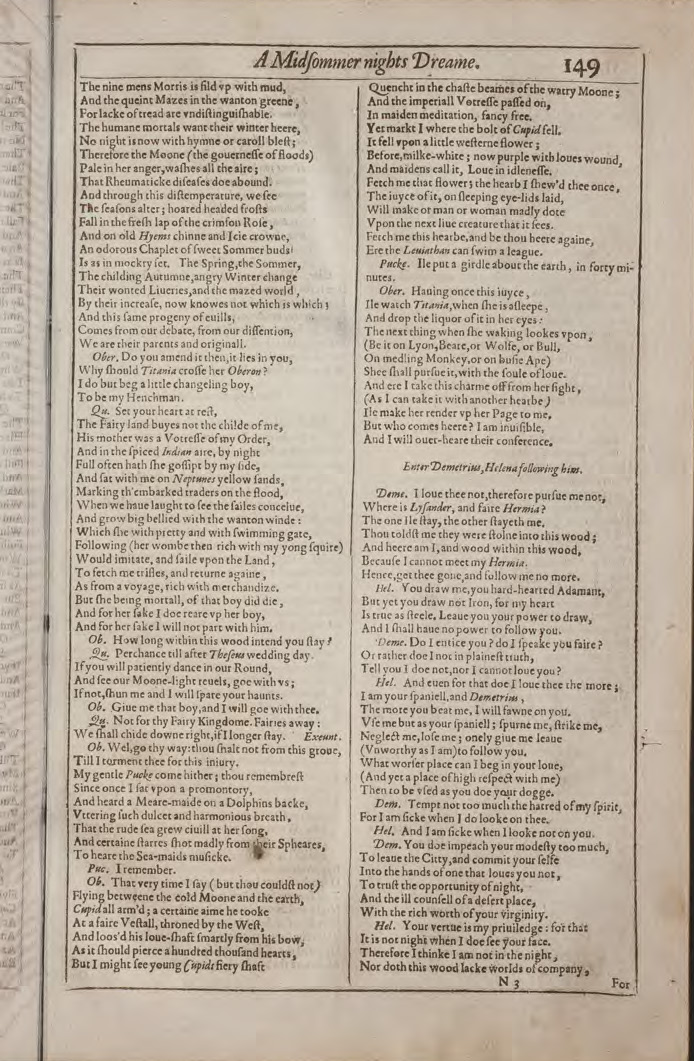 A Midſommer nights Dreame.
149
The nine mens Morris is fild vp with mud,
And the queint Mazes in the wanton greene,
For lacke of tread are vndiſtinguiſhable.
The humane mortals want their winter heere,
No night is now with hymne or caroll bleſt;
Therefore the Moone (the gouerneſſe of floods)
Pale in her anger, waſhes all the aire;
That Rheumaticke diſeaſes doe abound.
And through this diſtemperature, we ſee
The ſeaſons alter; hoared headed froſts
Fall in the freſh lap of the crimſon Roſe,
And on old Hyems chinne and Icie crowne,
An odorous Chaplet of ſweet Sommer buds
Is as in mockry ſet. The Spring, the Sommer,
The childing Autumne, angry Winter change
Their wonted Liueries, and the mazed world,
By their increaſe, now knowes not which is which;
And this ſame progeny of euills,
Comes from our debate, from our diſſention,
We are their parents and originall.
Ober. Do you amend it then, it lies in you,
Why ſhould Titania croſſe her Oberon?
I do but beg a little changeling boy,
To be my Henchman.
Qu. Set your heart at reſt,
The Fairy land buyes not the childe of me,
His mother was a Votreſſe of my Order,
And in the ſpiced Indian aire, by night
Full often hath ſhe goſſipt by my ſide,
And ſat with me on Neptunes yellow ſands,
Marking th'embarked traders on the flood,
When we haue laught to ſee the ſailes conceiue,
And grow big bellied with the wanton winde:
Which ſhe with pretty and with ſwimming gate,
Following (her wombe then rich with my yong ſquire)
Would imitate, and ſaile vpon the Land,
To fetch me trifles, and returne againe,
As from a voyage, rich with merchandize.
But ſhe being mortall, of that boy did die,
And for her ſake I doe reare vp her boy,
And for her ſake I will not part with him.
Ob. How long within this wood intend you ſtay?
Qu. Perchance till after Theſeus wedding day.
If you will patiently dance in our Round,
And ſee our Moone-light reuels, goe with vs;
If not, ſhun me and I will ſpare your haunts.
Ob. Giue me that boy, and I will goe with thee.
Qu. Not for thy Fairy Kingdome. Fairies away:
We ſhall chide downe right, if I longer ſtay. Exeunt.
Ob. Wel, go thy way: thou ſhalt not from this groue,
Till I torment thee for this iniury.
My gentle Pucke come hither; thou remembreſt
Since once I ſat vpon a promontory,
And heard a Meare-maide on a Dolphins backe,
Vttering ſuch dulcet and harmonious breath,
That the rude ſea grew ciuill at her ſong,
And certaine ſtarres ſhot madly from their Spheares,
To heare the Sea-maids muſicke.
Puc. I remember.
Ob. That very time I ſay (but thou couldſt not)
Flying betweene the cold Moone and the earth,
Cupid all arm'd; a certaine aime he tooke
At a faire Veſtall, throned by the Weſt,
And loos'd his loue-ſhaft ſmartly from his bow,
As it ſhould pierce a hundred thouſand hearts,
But I might ſee young Cupids fiery ſhaft
Quencht in the chaſte beames of the watry Moone;
And the imperiall Votreſſe paſſed on,
In maiden meditation, fancy free.
Yet markt I where the bolt of Cupid fell.
It fell vpon a little weſterne flower;
Before, milke-white; now purple with loues wound,
And maidens call it, Loue in idleneſſe.
Fetch me that flower; the hearb I ſhew'd thee once,
The iuyce of it, on ſleeping eye-lids laid,
Will make or man or woman madly dote
Vpon the next liue creature that it ſees.
Fetch me this hearbe, and be thou heere againe,
Ere the Leuiathan can ſwim a league.
Pucke. Ile put a girdle about the earth, in forty mi-
nutes.
Ober. Hauing once this iuyce,
Ile watch Titania, when ſhe is aſleepe,
And drop the liquor of it in her eyes:
The next thing when ſhe waking lookes vpon,
(Be it on Lyon, Beare, or Wolfe, or Bull,
On medling Monkey, or on buſie Ape)
Shee ſhall purſue it, with the ſoule of loue.
And ere I take this charme off from her ſight,
(As I can take it with another hearbe)
Ile make her render vp her Page to me.
But who comes heere? I am inuiſible,
And I will ouer-heare their conference.
Enter Demetrius, Helena following him.
Deme. I loue thee not, therefore purſue me not,
Where is Lyſander, and faire Hermia?
The one Ile ſtay, the other ſtayeth me.
Thou toldſt me they were ſtolne into this wood;
And heere am I, and wood within this wood,
Becauſe I cannot meet my Hermia.
Hence, get thee gone, and follow me no more.
Hel. You draw me, you hard-hearted Adamant,
But yet you draw not Iron, for my heart
Is true as ſteele. Leaue you your power to draw,
And I ſhall haue no power to follow you.
Deme. Do I entice you? do I ſpeake you faire?
Or rather doe I not in plaineſt truth,
Tell you I doe not, nor I cannot loue you?
Hel. And euen for that doe I loue thee the more;
I am your ſpaniell, and Demetrius,
The more you beat me, I will fawne on you.
Vſe me but as your ſpaniell; ſpurne me, ſtrike me,
Neglect me, loſe me; onely giue me leaue
(Vnworthy as I am) to follow you.
What worſer place can I beg in your loue,
(And yet a place of high reſpect with me)
Then to be vſed as you doe your dogge.
Dem. Tempt not too much the hatred of my ſpirit,
For I am ſicke when I do looke on thee.
Hel. And I am ſicke when I looke not on you.
Dem. You doe impeach your modeſty too much,
To leaue the Citty, and commit your ſelfe
Into the hands of one that loues you not,
To truſt the opportunity of night,
And the ill counſell of a deſert place,
With the rich worth of your virginity.
Hel. Your vertue is my priuiledge: for that
It is not night when I doe ſee your face.
Therefore I thinke I am not in the night,
Nor doth this wood lacke worlds of company,
N 3
For